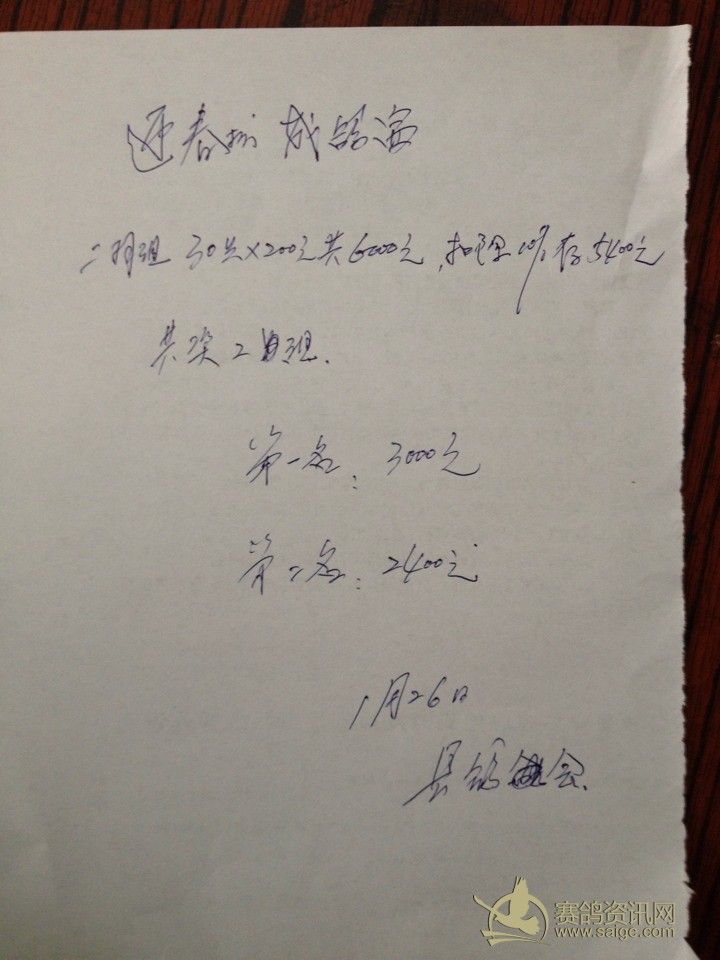 迎春杯成鸽赛
二羽组 30只×200元共6000元,扣除10%存5400元
共奖2组.
第一名: 3000元
第二名: 2400元
1月26日
县鸽会.
赛鸽资讯网
www.saige.com